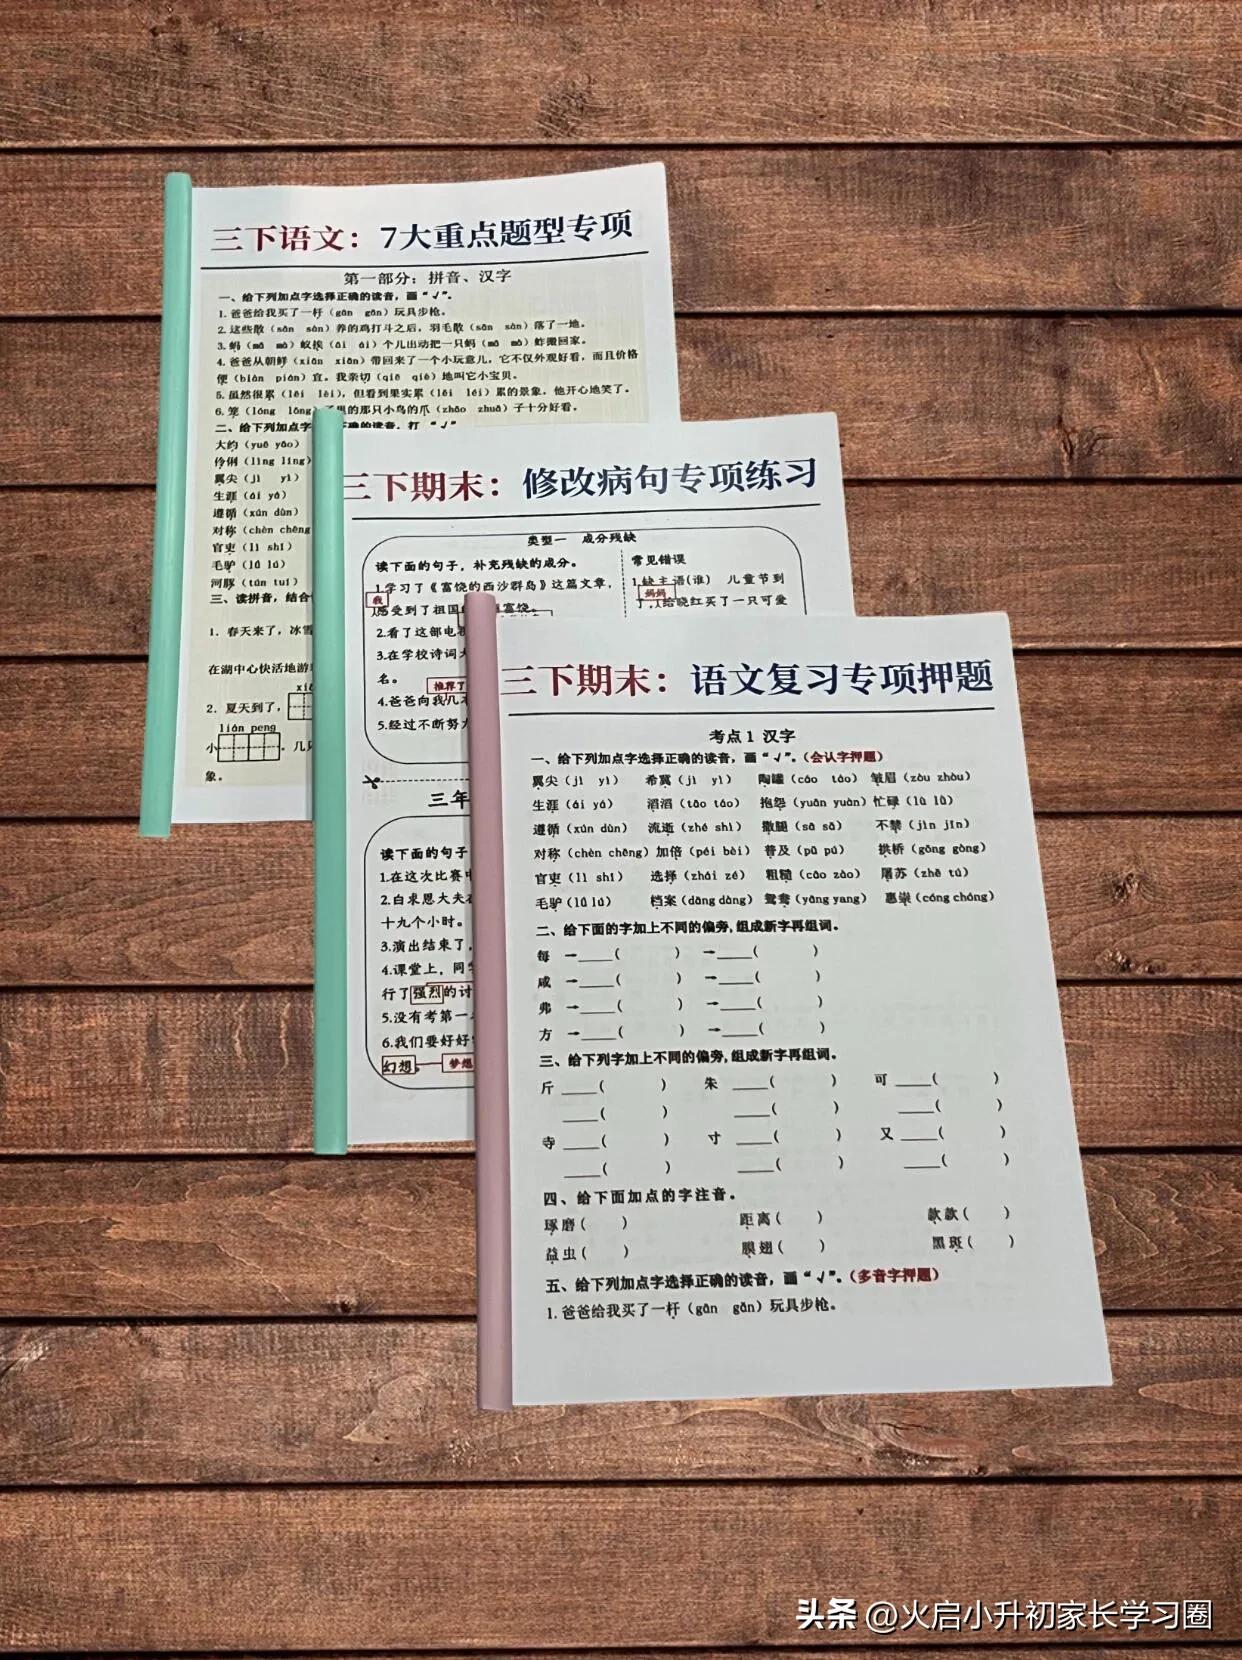 三下语文：7大重点题型专项
第一部分：拼音、汉字
一、给下列加点字选择正确的读音，画“√”。
1. 爸爸给我买了一杆（gān gǎn）玩具步枪。
2. 这些散（sǎn sàn）养的鸡打斗之后，羽毛散（sǎn sàn）落了一地。
个儿出动把一只蚂
蚱搬回家。
4. 爸爸从朝鲜（xiǎn xiān）带回来了一个小玩意儿，它不仅外观好看，而且价格
便（biàn pián）宜。我亲切（qiē qiè）地叫它小宝贝。
5. 虽然很累（lěi lèi），但看到果实累（lěi léi）累的景象，他开心地笑了。
6. 笼（lóng lǒng）
里的那只小鸟的爪（zhǎo zhuǎ）子十分好看。
二、给下列加点字
正确的读音，打“√”
大约（yuē yāo）
伶俐（lìng líng）
翼尖（jì yì）
生涯（ái yá）
遵循（xún dùn）
对称（chèn chēng
官吏（lì shǐ）
毛驴（lǘ lú）
河豚（tún tuí）
三、读拼音，结合
1. 春天来了，冰雪
在湖中心快活地游
2. 夏天到了，
lián peng
小
。几只
象。
三下期末：修改病句专项练习
类型一 成分残缺
读下面的句子，补充残缺的成分。
1.学习了《富饶的西沙群岛》这篇文章，
我
感受到了祖国
富饶。
2.看了这部电
3.在学校诗词大
名。
推荐了
4.爸爸向我几本
5.经过不断努力
常见错误
1.缺主语(谁) 儿童节到
妈妈
了，给晓红买了一只可爱
三年
读下面的句子
1.在这次比赛中
2.白求恩大夫在
十九个小时。
3.演出结束了，
4.课堂上，同学
行了强烈的讨
5.没有考第一
6.我们要好好
幻想。
梦想
三下期末：语文复习专项押题
考点1 汉字
一、给下列加点字选择正确的读音，画“√”。（会认字押题）
翼尖（jì yì） 希冀（jì yì） 陶罐（cáo táo） 皱眉（zòu zhòu）
生涯（ái yá） 滔滔（tāo táo） 抱怨（yuān yuàn） 忙碌（lù lǜ）
遵循（xún dùn） 流逝（zhé shì） 撒腿（sā sǎ） 不禁（jìn jīn）
对称（chèn chēng） 加倍（péi bèi） 普及（pǔ pú） 拱桥（gǒng gòng）
官吏（lì shǐ） 选择（zhái zé） 粗糙（cāo zào） 屠苏（zhě tú）
毛驴（lǘ lú） 档案（dǎng dàng） 鸳鸯（yāng yang） 惠崇（cóng chóng）
二、给下面的字加上不同的偏旁,组成新字再组词。
每 →____( ) →____( )
咸 →____( ) →____( )
弗 →____( ) →____( )
方 →____( ) →____( )
三、给下列字加上不同的偏旁,组成新字再组词。
斤 ____( ) 朱 ____( ) 可 ____( )
____( ) ____( ) ____( )
寺 ____( ) 寸 ____( ) 又 ____( )
____( ) ____( ) ____( )
四、给下面加点的字注音。
琢磨( ) 距离( ) 款款( )
益虫( ) 膜翅( ) 黑斑( )
五、给下列加点字选择正确的读音，画“√”。（多音字押题）
1. 爸爸给我买了一杆（gān gǎn）玩具步枪。
头条 @火启小升初家长学习圈